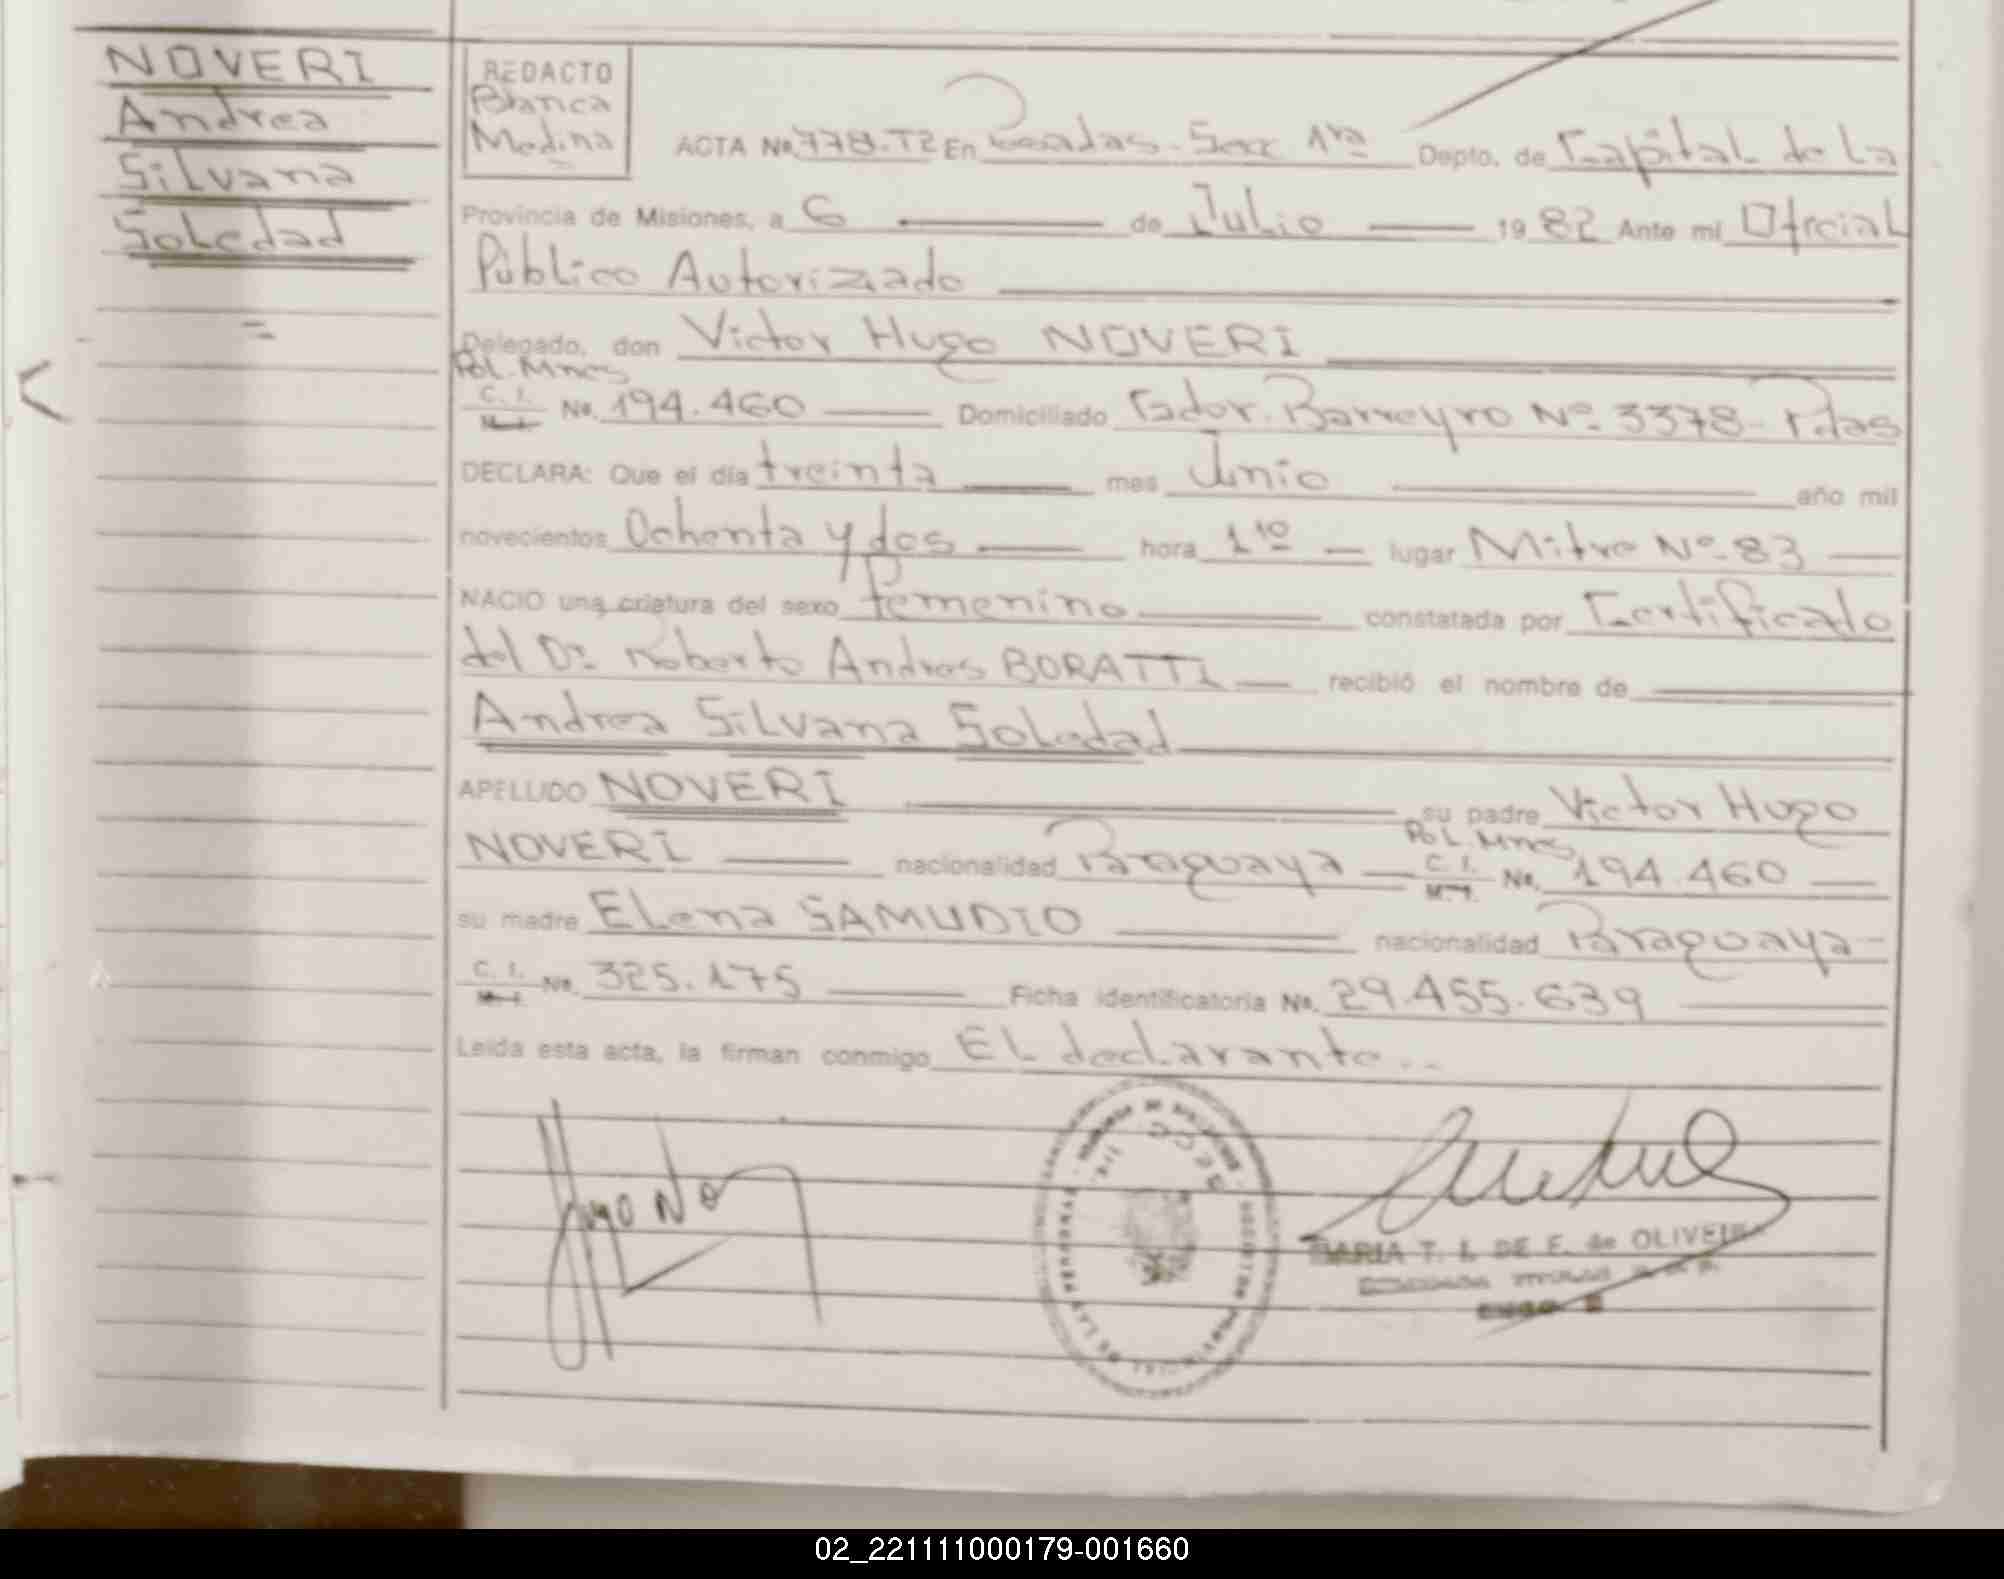 NOVERI
Andrea
Silvana
Soledad
REDACTO
Blanca
Medina
ACTA No. 778.T2 En Posadas. Secc 1ra Depto. de Capital de La
Provincia de Misiones, a 6 de Julio 1982 Ante mi Oficial
Público Autorizado
Delegado, don Victor Hugo NOVERI
Pol. Mnes
C. I. No. 194.460 Domiciliado Gdor. Barreyro Nº 3378- Pdas
DECLARA: Que el día treinta mes Junio año mil
novecientos Ochenta y dos hora 1¹⁰ lugar Mitre Nº 83
NACIO una criatura del sexo femenino constatada por Certificado
del Dr. Roberto Andres BORATTI recibió el nombre de
Andrea Silvana Soledad
APELLIDO NOVERI su padre Victor Hugo
NOVERI nacionalidad Paraguaya Pol. Mnes C. I. M. I. No. 194.460
su madre Elena SAMUDIO nacionalidad Paraguaya
C. I. No. 325.175 Ficha identificatoria No. 29.455.639
Leída esta acta, la firman conmigo El declarante..
Hugo No
MARIA T. I. DE F. de OLIVEIRA
02_221111000179-001660